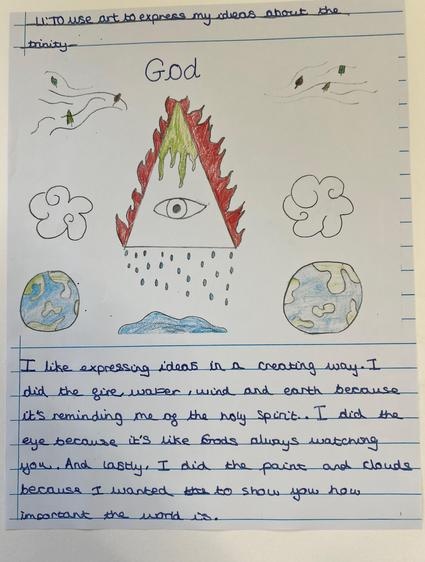 LI: TO use art to express my ideas about the
trinity
God
I like expressing ideas in a creating way. I
did the fire, water, wind and earth because
it's reminding me of the holy spirit. I did the
eye because it's like Gods always watching
you. And lastly, I did the paint and clouds
because I wanted to show you how
important the world is.